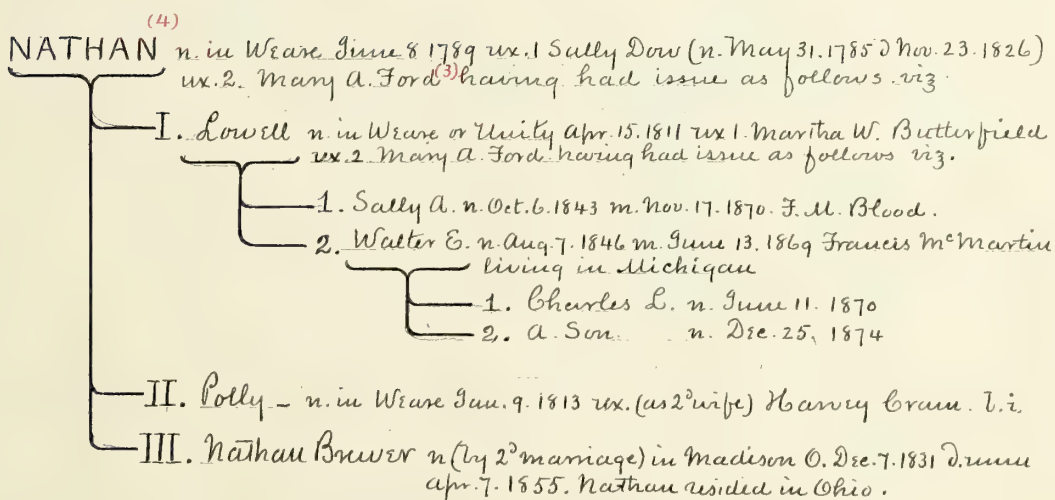 (4)
NATHAN n. in Weare June 8 1789 ux. 1 Sally Dow (n. May 31. 1785 ∂ Nov. 23. 1826)
ux. 2. Mary A. Ford (3) having had issue as follows viz
I. Lowell n. in Weare or Unity Apr. 15. 1811 ux 1. Martha W. Butterfield
ux. 2 Mary A. Ford having had issue as follows viz.
1. Sally A. n. Oct. 6. 1843 m. Nov. 17. 1870. F. M. Blood.
2. Walter E. n. Aug. 7. 1846 m. June 13. 1869 Francis McMartin
living in Michigan
1. Charles L. n. June 11. 1870
2. A. Son. n. Dec. 25, 1874
II. Polly - n. in Weare Jan. 9. 1813 ux. (as 2d wife) Harvey Cram. l. i.
III. Nathan Brewer n (by 2d marriage) in Madison O. Dec. 7. 1831 ∂. unm
Apr. 7. 1855. Nathan resided in Ohio.